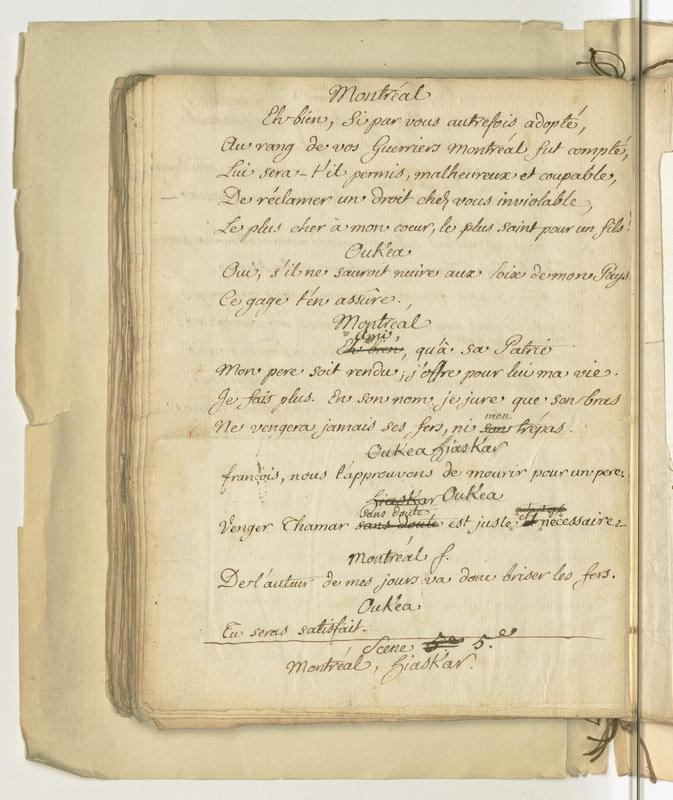 Montréal
Eh bien, si par vous autrefois adopté,
Au rang de vos Guerriers Montréal fut compté,
Lui sera-t'il permis, malheureux et coupable,
De réclamer un droit chez vous inviolable,
Le plus cher à mon coeur, le plus saint pour un fils!
Oukéa
Oui, s'il ne sauroit nuire aux loix de mon Pays.
Ce gage t'en assûre.
Montréal
Ami
Eh bien, qu'à sa Patrie
Mon pere soit rendu; j'offre pour lui ma vie.
Je fais plus. En son nom je jure que son bras
mon
Ne vengera jamais ses fers, ni son trépas.
Oukéa hiaskar
françois, nous t'approuvons de mourir pour un pere:
hiaskar Oukéa
sans doute
Venger Thamar sans doute est juste et nécessaire.
Montréal f.
De l'auteur de mes jours va donc briser les fers.
Oukéa
Tu seras satisfait.
Scene 5.e 5.e
Montréal, hiaskar.